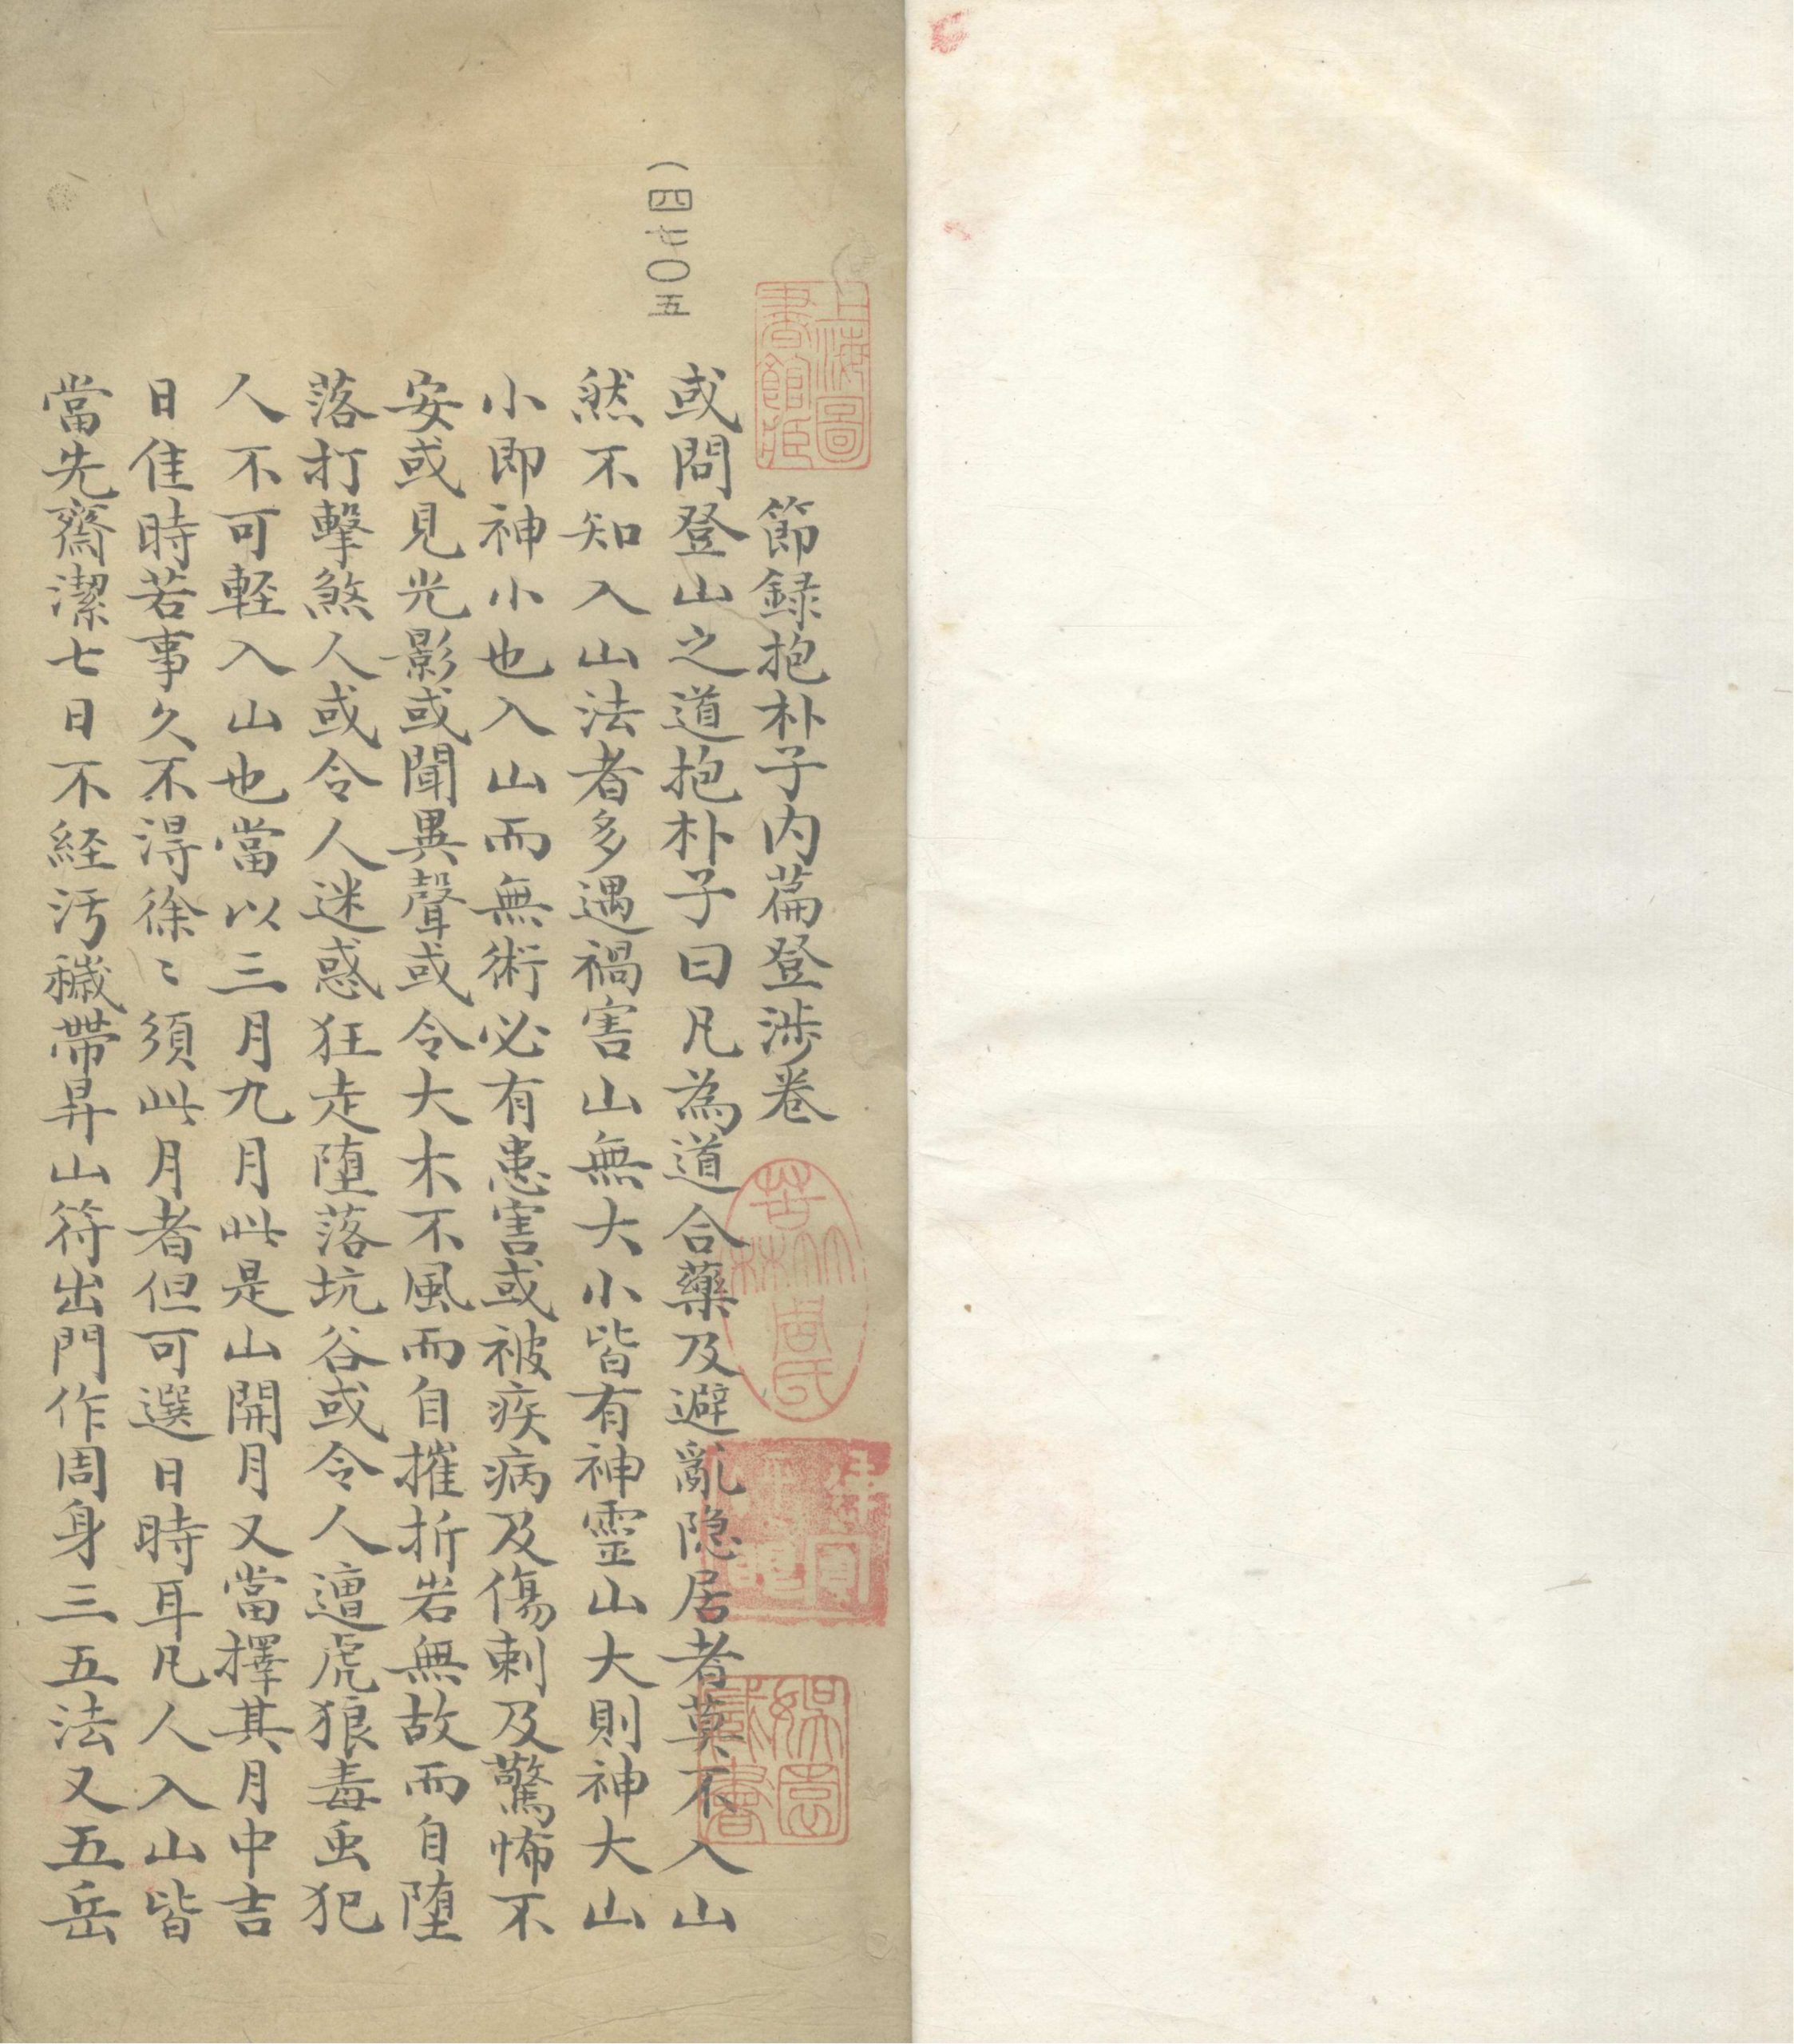 節録抱朴子内篇登涉卷
或問登山之道抱朴子曰凡為道合藥及避亂隐居者莫不入山
然不知入山法者多遇禍害山無大小皆有神靈山大則神大山
小即神小也入山而無術必有患害或被疾病及傷刺及驚怖不
安或見光影或聞異聲或令大木不風而自摧折岩無故而自堕
落打擊煞人或令人迷惑狂走堕落坑谷或令人遭虎狼毒虫犯
人不可輕入山也當以三月九月此是山開月又當擇其月中吉
日佳時若事久不得徐〻須此月者但可選日時耳凡人入山皆
當先齋潔七日不経汚穢帶昇山符出門作周身三五法又五岳
(四七〇五
上海圖書館藏
苦林周氏
娛園藏書